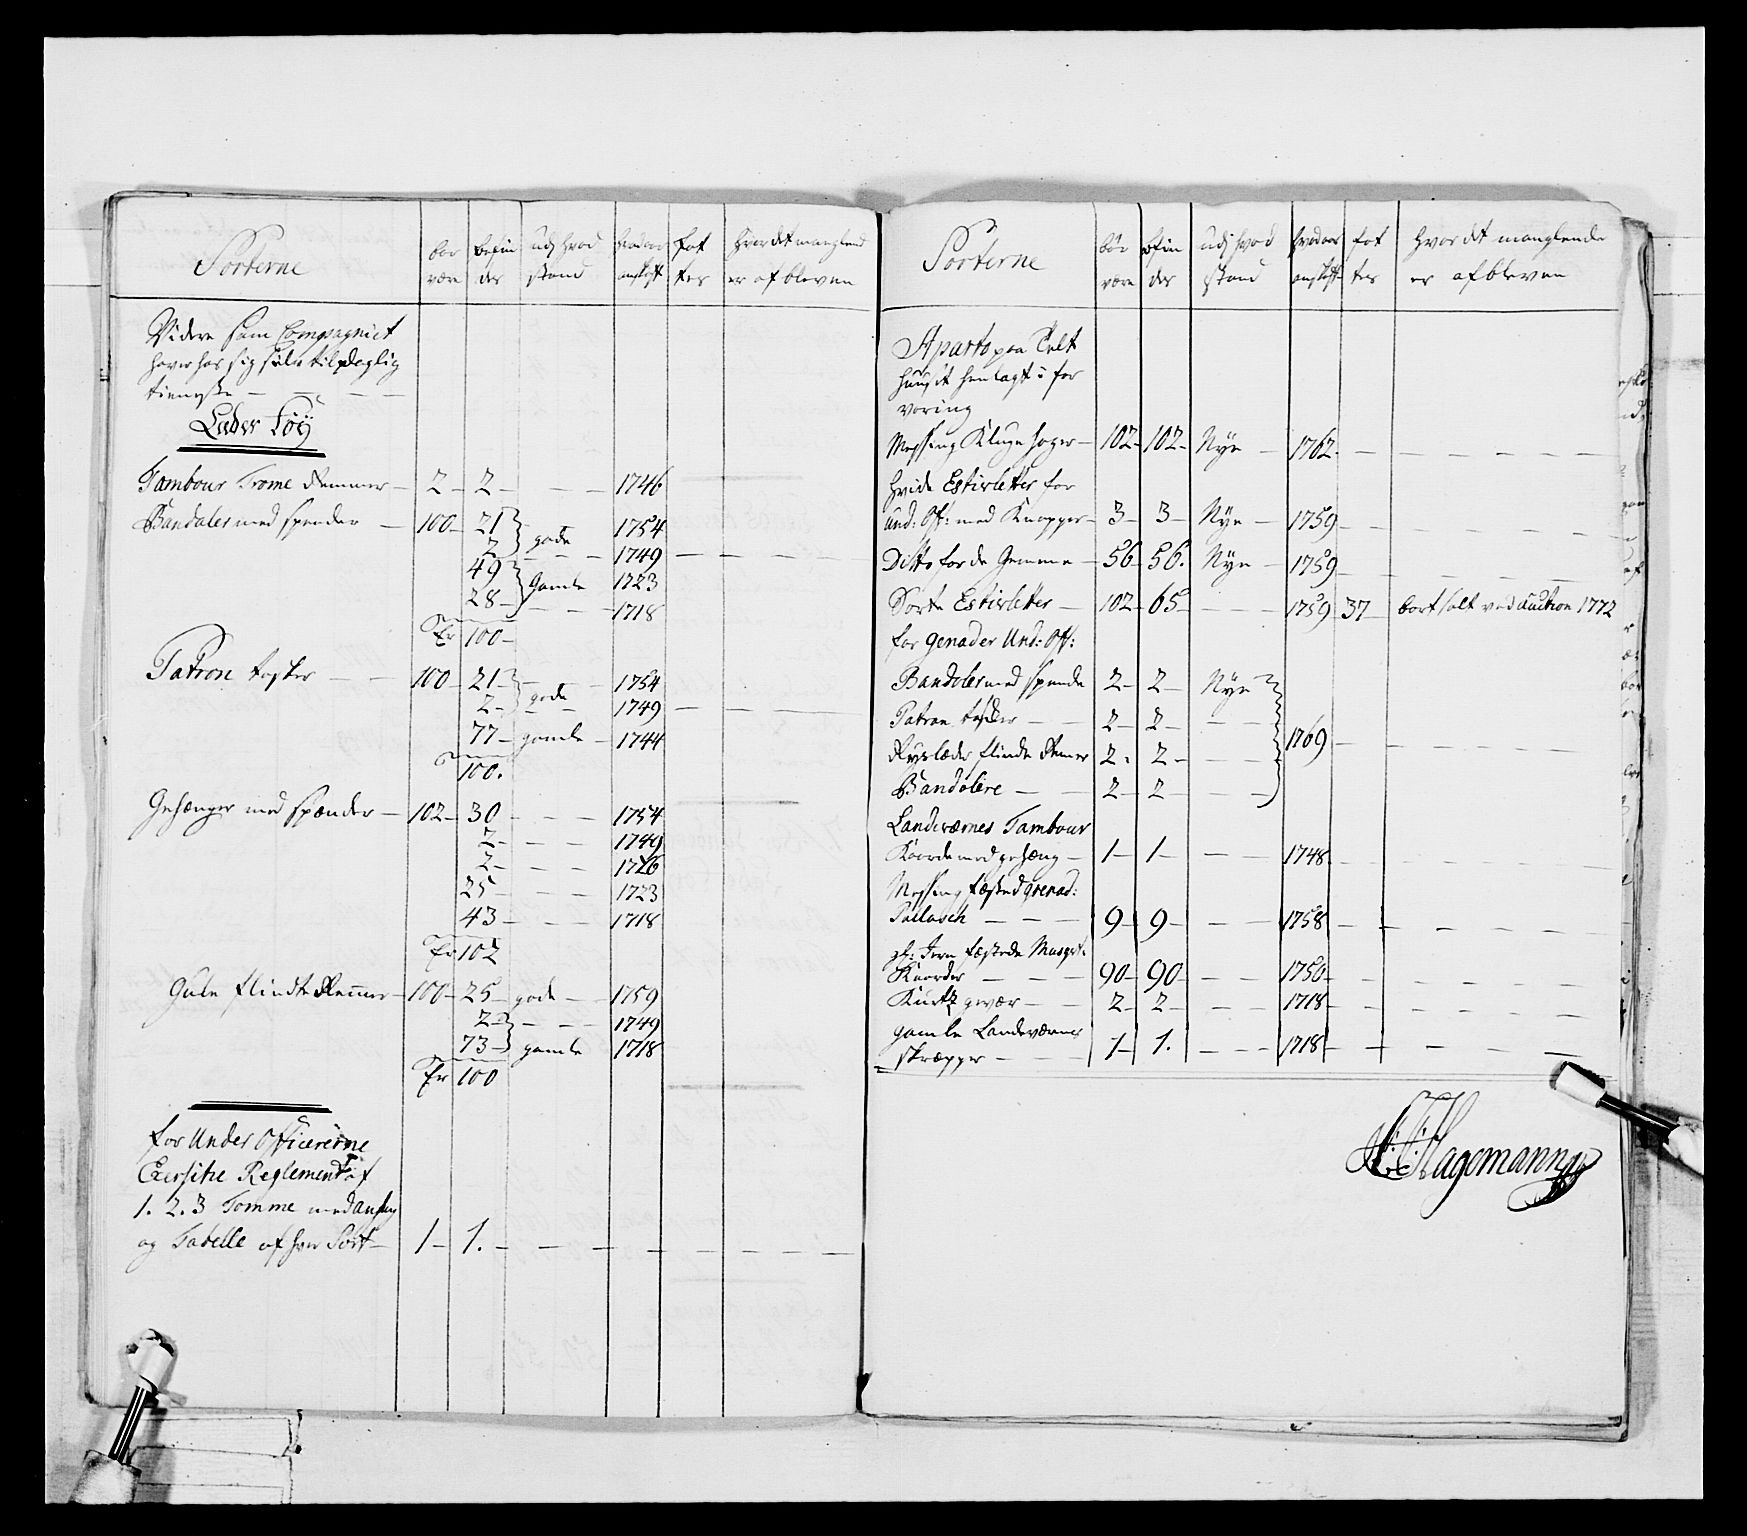 Sorterne | bør være | befindes | udj hvad stand | hvad aar anskaft | fattes | hvor det manglend er afbleven
Videre som Compagniet
haver hos sig selv til daglig
tieneste — — —
Læder Töÿ
Tambour Trome Remmer — 2 — 2 — — — 1746
Bandoler med spender — 100 — 21 gode 1754
2 — — — 1749 — — —
49 Gamle 1723
28 — — — 1718
Er 100 —
Patron tasker — — 100 — 21 — — 1754
2 — gode — 1749 — — —
77 — gamle — 1744
100.
Gehænger med spænder — 102 — 30 — — — 1754
2 — — — 1749
2 — — — 1726
25 — — — 1723
43 — — — 1718
Er 102
Gule flindte Remmer — 100 — 25 — gode — 1759
2 — — — 1749
73 — gamle 1718
Er 100
for Under Officererne
Exersitie Reglementt af
1. 2. 3 Tomme med
og Tabelle af hver Sort — 1 — 1. — — — — — — —
Sorterne | bør være | befindes | udj hvad stand | hvad aar anskaft | fattes | hvor det manglende er afbleven
Aparto paa Telt
huuset henlagt i for
varing
Messing Kluge hager — 102 — 102 — Nÿe — 1762. — — — —
hvide Estivletter for
und: Off: med Knapper — 3 — 3 — Nÿe — 1759 — — — —
Ditto for de Gemene — 56 — 56. Nÿe — 1759 — — — —
Sorte Estivletter — 102 — 65 — — — 1759 37 — bortsolt ved Auction 1772
for genader Und: Off:
Bandoler med spende 2 — 2 — Nÿe
Patron tasker — — 2 — 2 — — —
Ryslæder flinde Remer 2. 2 — — — 1769 — — — —
Bandolere — — 2 — 2 — — —
Landeværnes Tambour
Kaarde med gehæng — 1 — 1 — — — 1748 — — — —
Messing fæsted grenad:
Pallasch — — — 9 — 9 — — — 1758 — — — —
Jern fæstede Musqt:
Kaarder — — — 90 — 90 — — — 1750 — — — —
Kurtz gevær — — 2 — 2 — — — 1718 — — — —
gamle Landeværnes
skræpper — — — 1 — 1. — — — 1718 — — — —
Hagemann